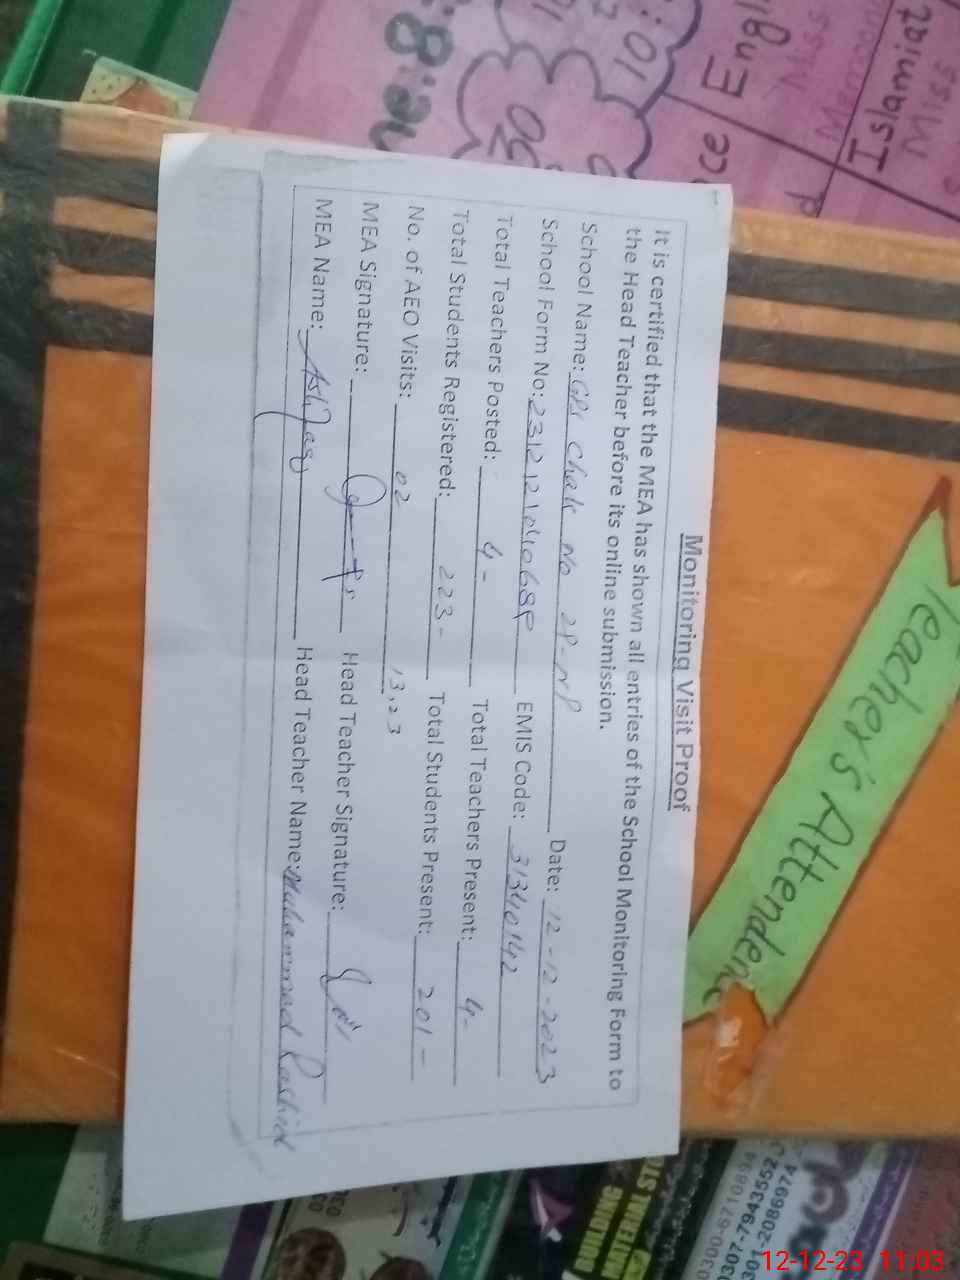 Monitoring Visit Proof
It is certified that the MEA has shown all entries of the School Monitoring Form to
the Head Teacher before its online submission.
School Name: GPS Chak No 28-NP Date: 12-12-2023
School Form No: EMIS Code: 31340142
Total Teachers Posted: 4- Total Teachers Present: 4-
Total Students Registered: 223- Total Students Present: 201-
No. of AEO Visits: 02 13,23
MEA Signature: Head Teacher Signature:
MEA Name: Head Teacher Name: Muhammad Rashid
Teacher's Attendenc
Islamiat
Miss
Eng
Miss
ce
:01
05
0300-6710894
0307-7943552
301-2086974
12-12-23 11:03